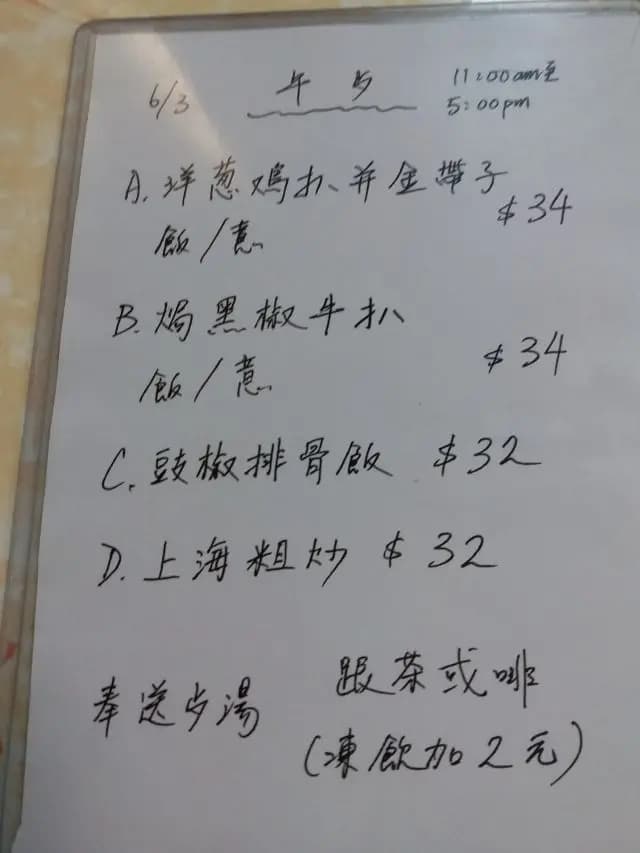 6/3 午歺 11:00am至
5:00pm
A. 洋葱鸡扒并金帶子
飯/意 $34
B. 焗黑椒牛扒
飯/意 $34
C. 豉椒排骨飯 $32
D. 上海粗炒 $32
跟茶或啡
奉送歺湯
(凍飲加2元)